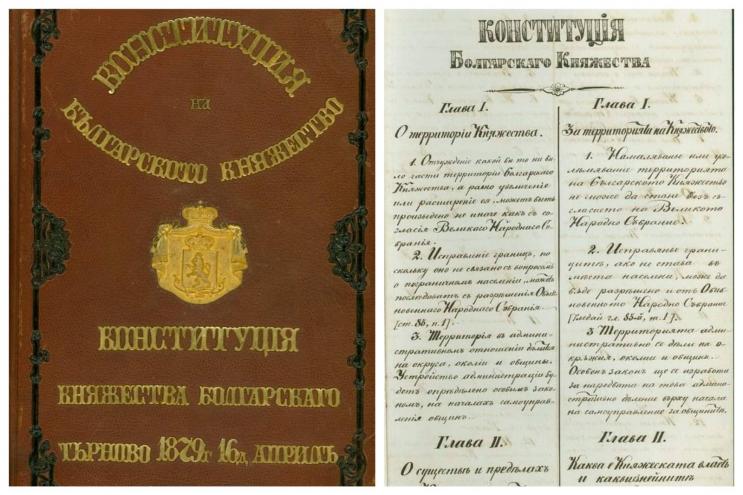 КОНСТИТУЦИЯ
НА
БЪЛГАРСКОТО КНЯЖЕСТВО
КОНСТИТУЦІЯ
КНЯЖЕСТВА БОЛГАРСКАГО
ТЪРНОВО 1879г 16д. АПРИЛЪ
КОНСТИТУЦІЯ
БОЛГАРСКАГО КНЯЖЕСТВА
Глава I.
О территоріи Княжества.
1. Отчужденіе какой бы то ни бы-
ло части территоріи Болгарскаго
Княжества, а равно увеличеніе
или расширеніе ея, можетъ быть
произведено не иначе какъ съ со-
гласія Великаго Народнаго Со-
бранья.
2. Исправленіе границъ, по-
скольку оно не связано съ вопросомъ
о пограничномъ населеніи,
послѣдовать съ разрѣшенія
Народнаго Собранія
[ст. 85, п. 1].
3. Территорія въ админи-
стративномъ отношеніи дѣлится
на округа, околіи и общины.
Устройство администраціи бу-
детъ опредѣлено особымъ зако-
номъ, на началахъ самоуправ-
ленія общинъ.
Глава II.
О существѣ и предѣлахъ
Глава I.
За територията на Княжеството.
1. Намаляванье или уго-
лѣмяванье територията
на Българското Княжество
не може да стане безъ съ-
гласието на Великото
Народно Събрание.
2. Исправянье грани-
цитѣ, ако не става въ
мѣста населени, може да
бѫде разрѣшено и отъ Оби-
кновенното Народно Събрание
3. Територията адми-
нистративно се дѣли на о-
крѫжия, околии и общини.
Особенъ законъ ще се изработи
за наредбата на това админи-
стративно дѣление върху начала
на самоуправление за общинитѣ.
Глава II.
Каква е Княжеската власть
и